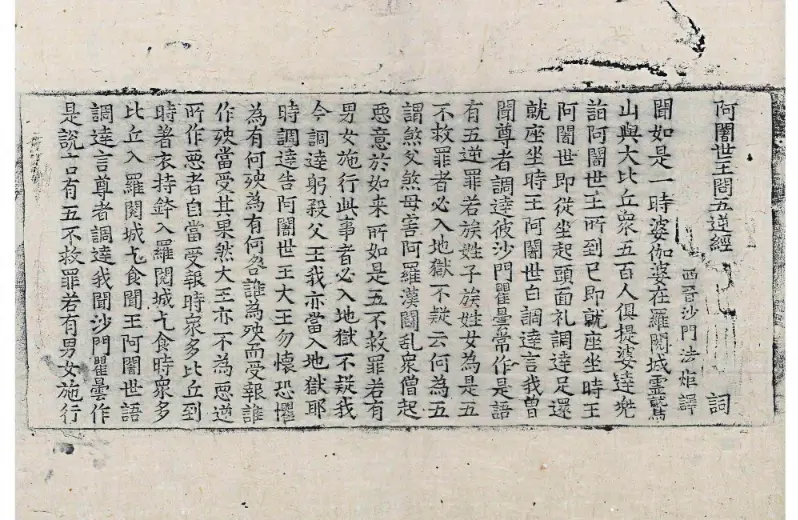 阿闍世王問五逆經 詞
西晉沙門法炬譯
聞如是一時婆伽婆在羅閱城靈鷲
山與大比丘衆五百人俱提婆達兜
詣阿闍世王所到已即就座坐時王
阿闍世即從坐起頭面礼調達足還
就座坐時王阿闍世白調達言我曾
聞尊者調達彼沙門瞿曇常作是語
有五逆罪若族姓子族姓女為是五
不救罪者必入地獄不疑云何為五
謂煞父煞母害阿羅漢鬪乱衆僧起
惡意於如来所如是五不救罪若有
男女施行此事者必入地獄不疑我
今調達躬殺父王我亦當入地獄耶
時調達告阿闍世王大王勿懷恐懼
為有何殃為有何咎誰為殃而受報誰
作殃當受其果然大王亦不為惡逆
所作惡者自當受報時衆多比丘到
時著衣持鉢入羅閱城乞食時衆多
比丘入羅閱城乞食聞王阿闍世語
調達言尊者調達我聞沙門瞿曇作
是說言有五不救罪若有男女施行